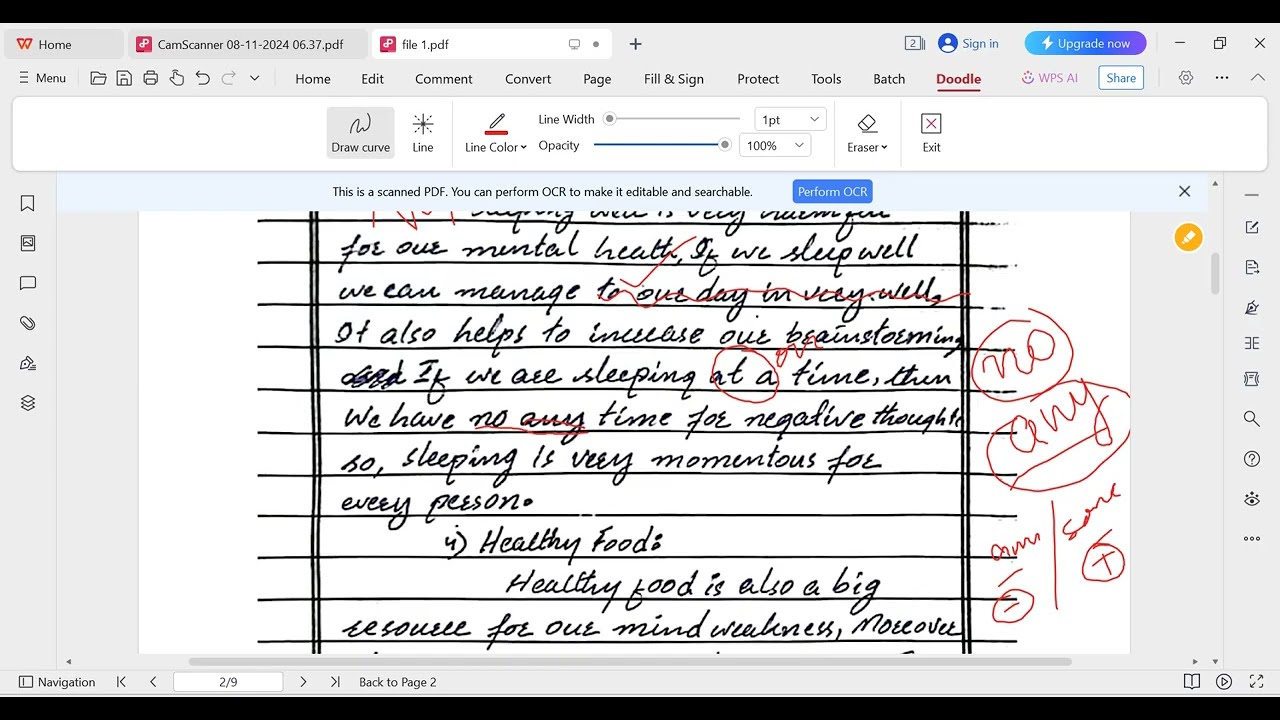 Home
CamScanner 08-11-2024 06.37.pdf
file 1.pdf
2
Sign in
Upgrade now
Menu
Home Edit Comment Convert Page Fill & Sign Protect Tools Batch Doodle
WPS AI
Share
Draw curve
Line
Line Color
Line Width
1pt
Opacity
100%
Eraser
Exit
This is a scanned PDF. You can perform OCR to make it editable and searchable.
Perform OCR
well is very harmful
for our mental health, If we sleep well
we can manage to our day in very well,
It also helps to increase our brainstorming
on
If we are sleeping at a time, then
no
we have no any time for negative thoughts
any
so, sleeping is very momentous for
every person.
some
ii) Healthy Food:
+
Healthy food is also a big
-
resource for our mind weakness, Moreover
Navigation
2/9
Back to Page 2